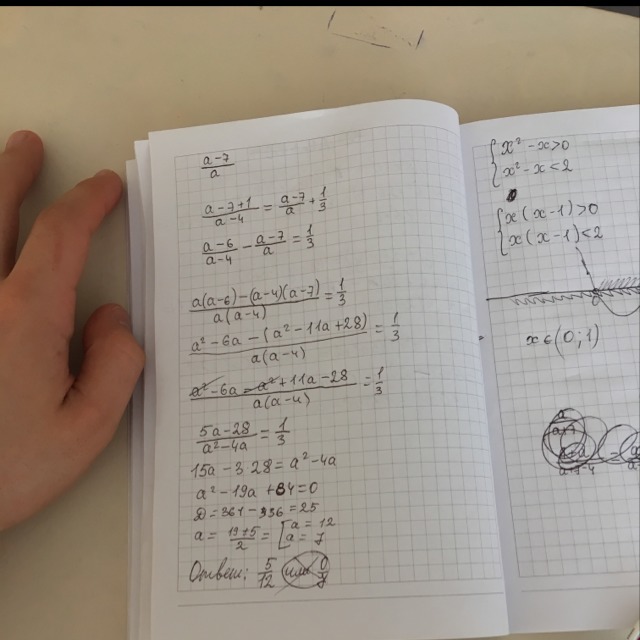 a-7/a
a-7+1/a-4 = a-7/a + 1/3
a-6/a-4 - a-7/a = 1/3
a(a-6)-(a-4)(a-7)/a(a-4) = 1/3
a²-6a-(a²-11a+28)/a(a-4) = 1/3
a²-6a-a²+11a-28/a(a-4) = 1/3
5a-28/a²-4a = 1/3
15a-3·28=a²-4a
a²-19a+84=0
D=361-336=25
a = 19±5/2 = [a=12
a=7
Ответ: 5/12
{x²-x>0
x²-x<2
{x(x-1)>0
x(x-1)<2
x∈(0;1)